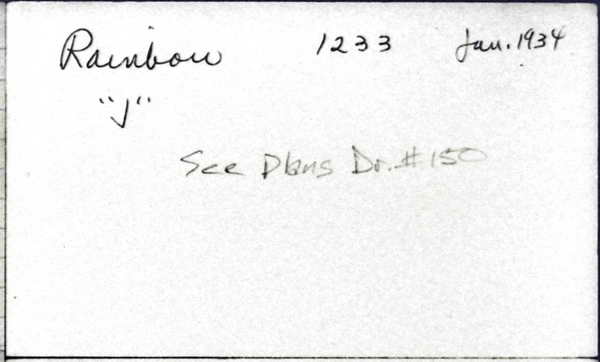 Rainbow 1233 Jan. 1934
"J"
See Plans Dr. #150